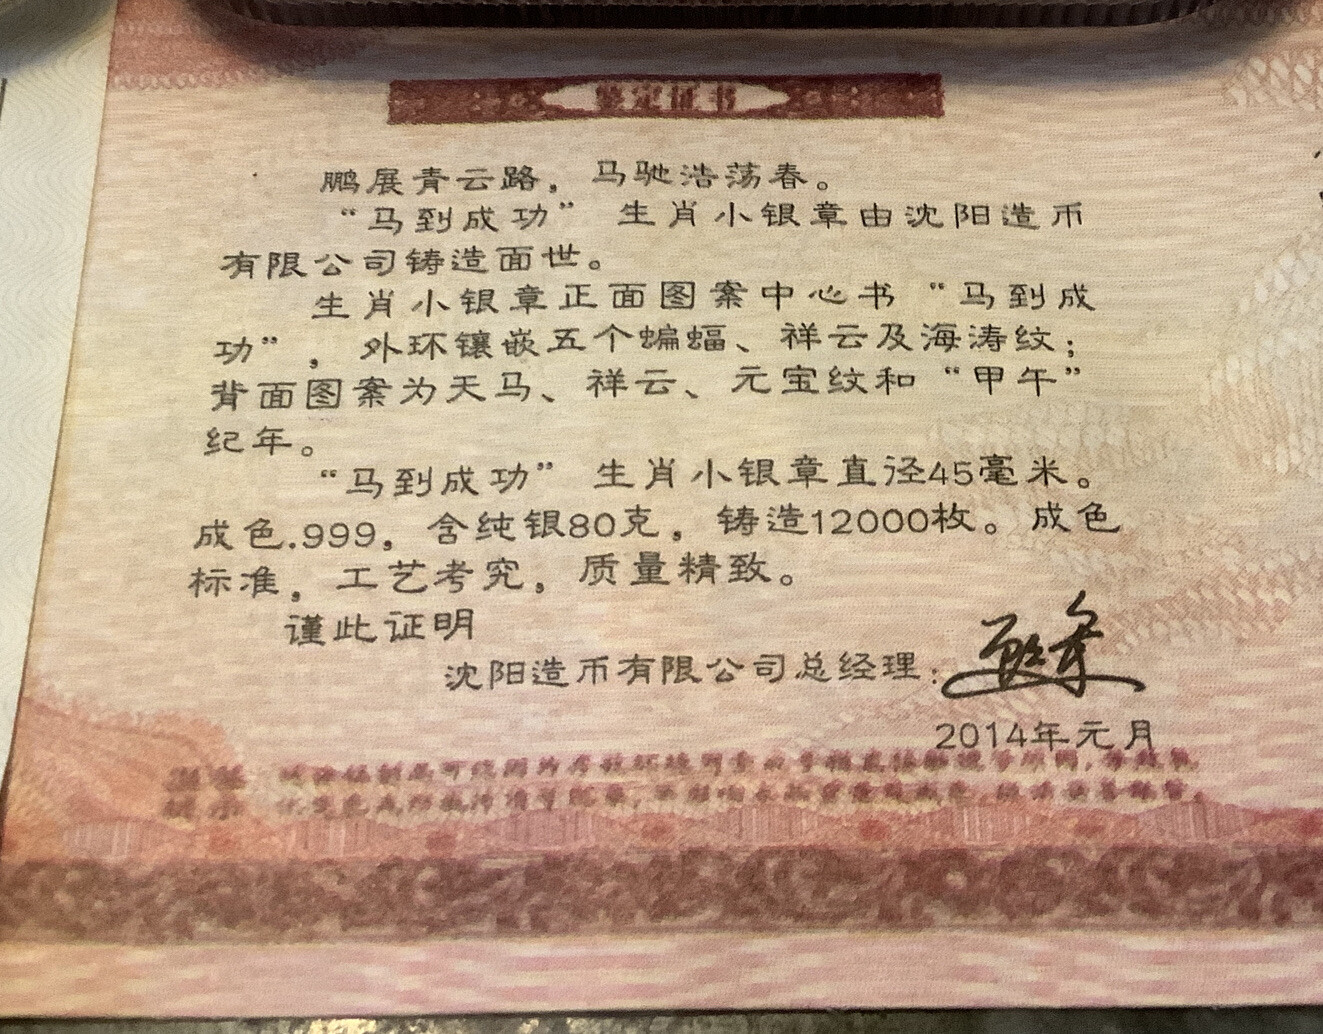 鉴定证书
鹏展青云路，马驰浩荡春。
“马到成功” 生肖小银章由沈阳造币
有限公司铸造面世。
生肖小银章正面图案中心书 “马到成
功”，外环镶嵌五个蝙蝠、祥云及海涛纹；
背面图案为天马、祥云、元宝纹和 “甲午”
纪年。
“马到成功” 生肖小银章直径45毫米。
成色.999，含纯银80克，铸造12000枚。成色
标准，工艺考究，质量精致。
谨此证明
沈阳造币有限公司总经理：
2014年元月